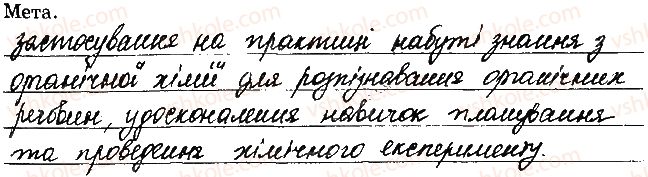 Мета.
застосування на практиці набуті знання з
органічної хімії для розпізнавання органічних
речовин, удосконалення навичок планування
та проведення хімічного експерименту.